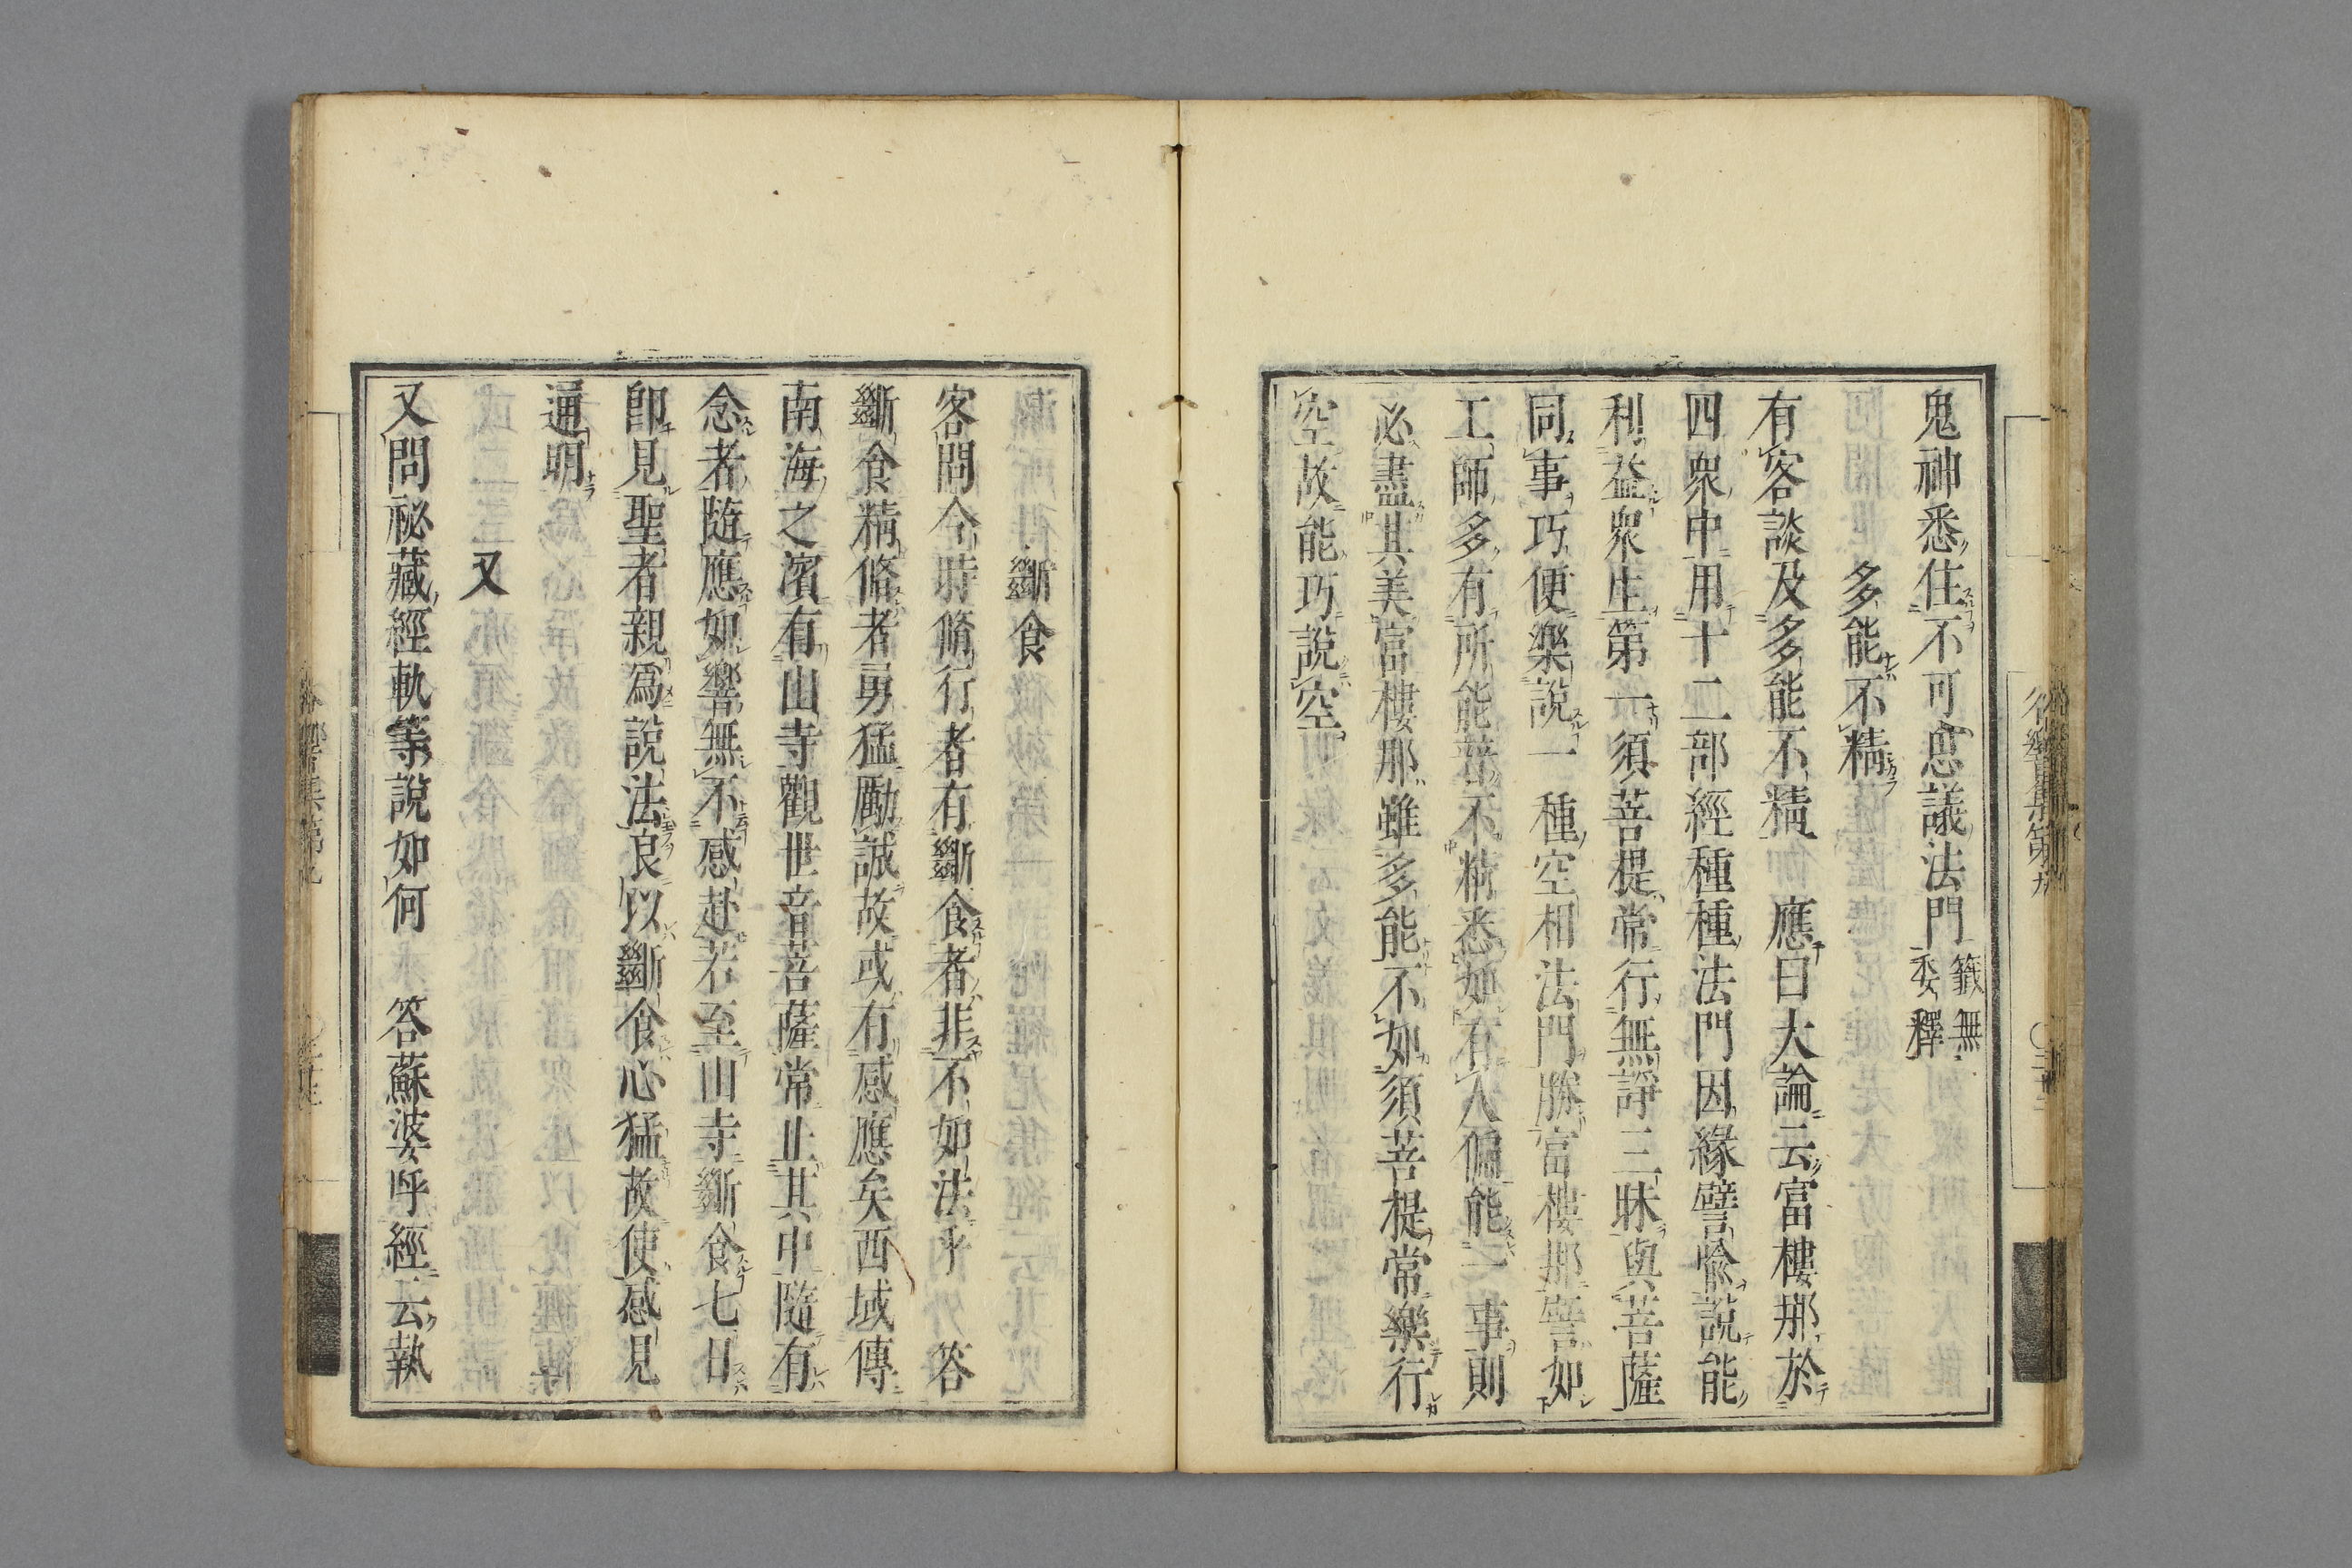 鬼神悉住不可思議法門籤無委釋
多能不精
有客談及多能不精　應曰大論云富樓那於
四衆中用十二部經種種法門因緣譬喩說能
利益衆生第一須菩提常行無諍三昧與菩薩
同事巧便樂說一種空相法門勝富樓那譬如
工師多有所能普不精悉如有人偏能一事則
必盡其美富樓那雖多能不如須菩提常樂行
空故能巧說空
斷食
客問今時脩行者有斷食者非不如法乎　答
斷食精脩者勇猛勵誠故或有感應矣西域傳
南海之濱有山寺觀世音菩薩常止其中隨有
念者隨應如響無不感赴若至山寺斷食七日
卽見聖者親爲說法良以斷食心猛故使感見
通明
又
又問祕藏經軌等說如何　答蘇婆呼經云執